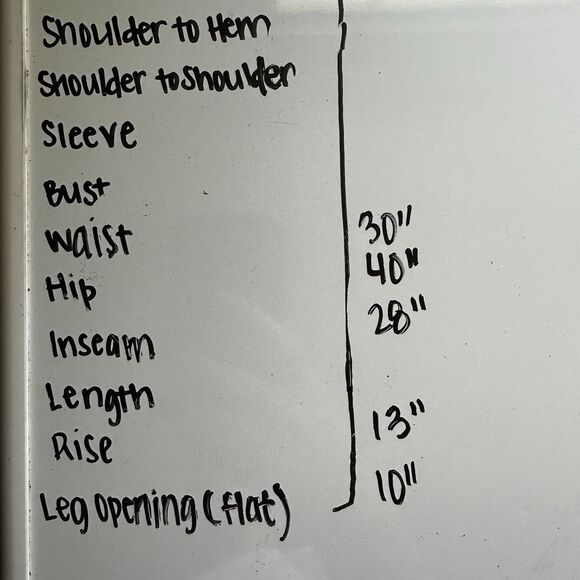 Shoulder to Hem
Shoulder to Shoulder
Sleeve
Bust
Waist 30"
Hip 40"
Inseam 28"
Length
Rise 13"
Leg Opening (flat) 10"